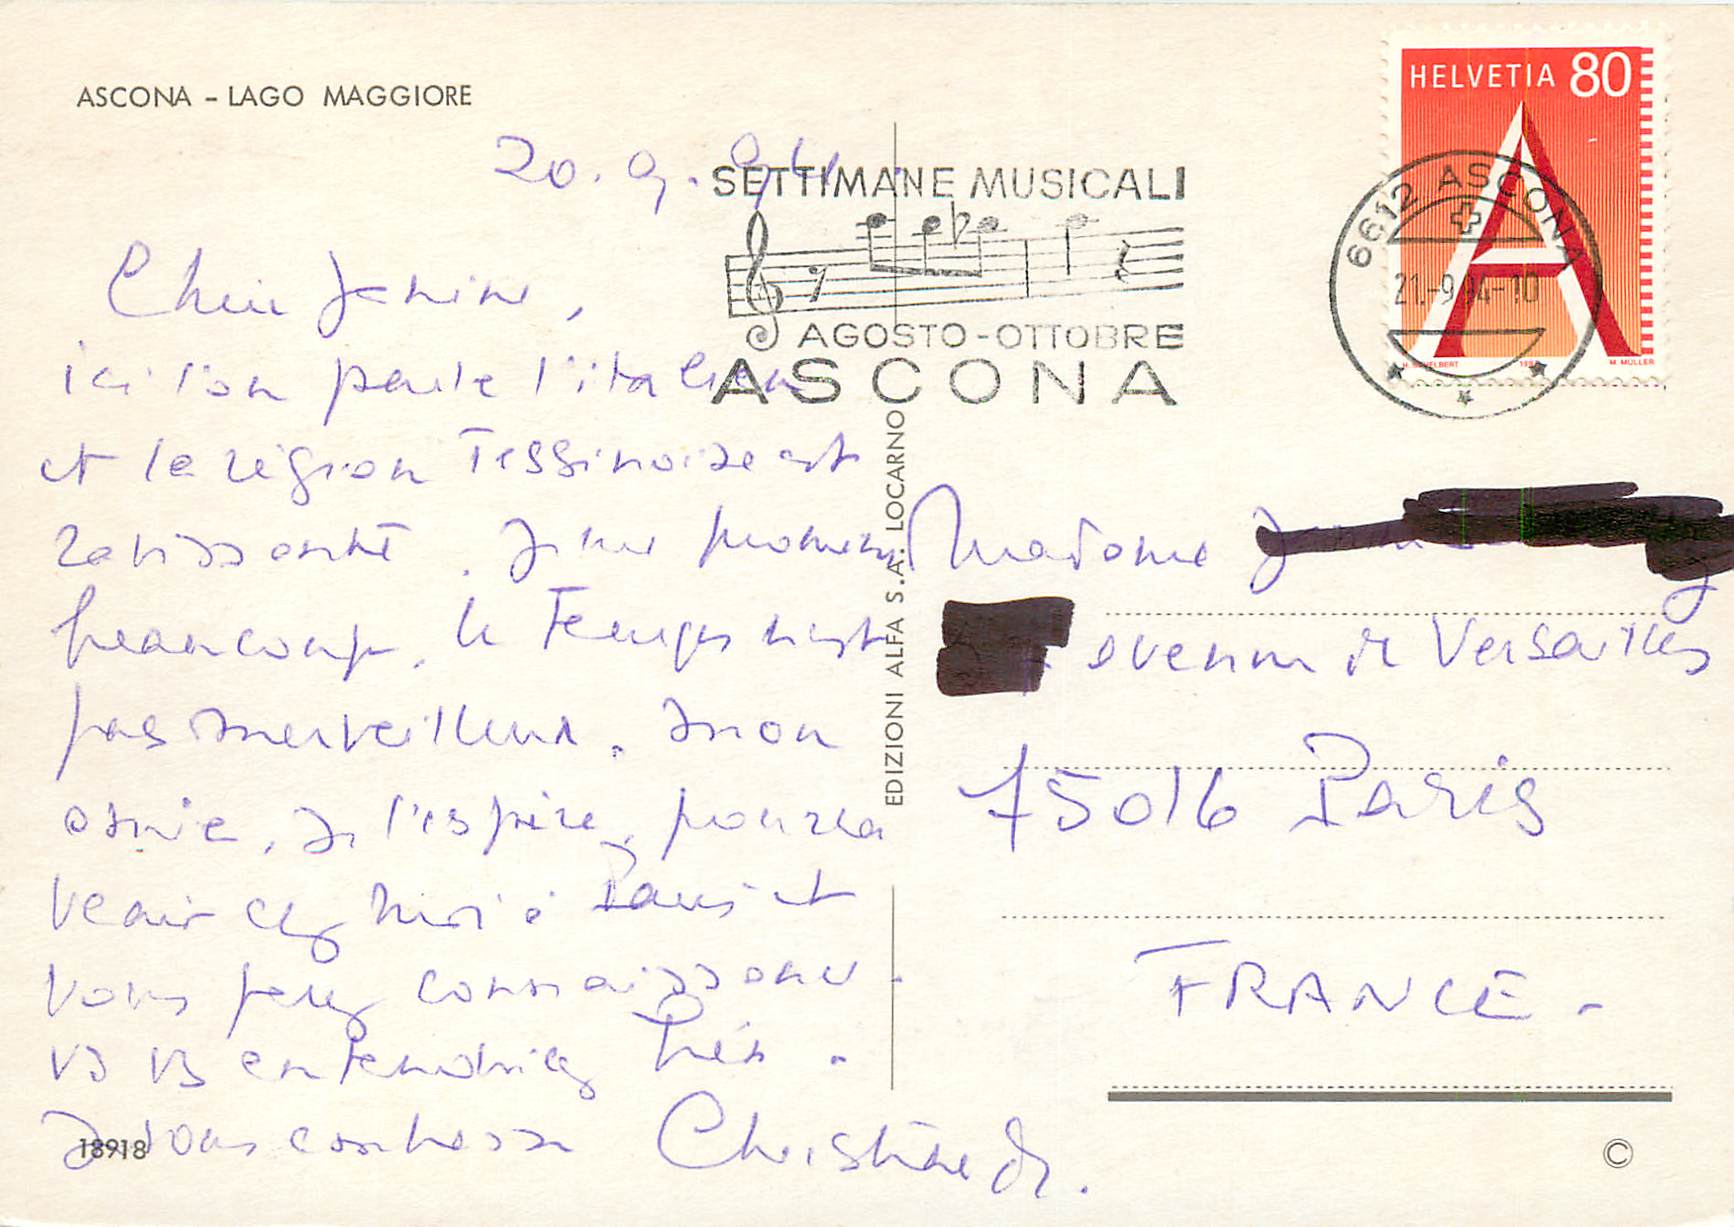 ASCONA – LAGO MAGGIORE
HELVETIA 80
20.9.94
SETTIMANE MUSICALI
AGOSTO-OTTOBRE
ASCONA
6612 ASCONA
21.-9.94-10
M. MÜLLER
Chère Janine,
ici l'on parle l'italien
et la région Tessinoise est
ravissante. Je me promène
beaucoup, le Temps n'est
pas merveilleux.
amie, je l'espère, pourra
venir chez moi à Paris et
vous ferez connaissance.
vs vs entendriez très.
Je vous embrasse Christiane
EDIZIONI ALFA S.A. LOCARNO
Madame
avenue de Versailles
75016 Paris
FRANCE -
18918
©